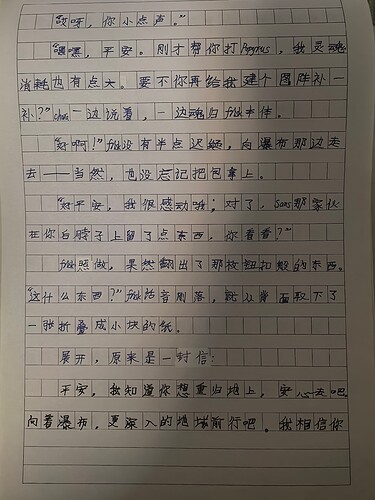 “哎呀，你小点声。”
“嘿嘿，平安。刚才帮你打Papyrus，我灵魂
消耗也有点大。要不你再给我建个图阵补一
补？”chara一边说着，一边魂归frisk本体。
“好啊！”frisk没有半点迟疑，向瀑布那边走
去——当然，也没忘记把包拿上。
“对平安，我很感动哦；对了，Sans那家伙
在你右脖子上留了点东西，你看看？”
frisk照做，果然翻出了那枚纽扣般的东西。
“这什么东西？”frisk话音刚落，就从背面取下了
一张折叠成小块的纸。
展开，原来是一封信：
平安，我知道你想重归地上，安心去吧
向着瀑布，更深入的地域前行吧。我相信你